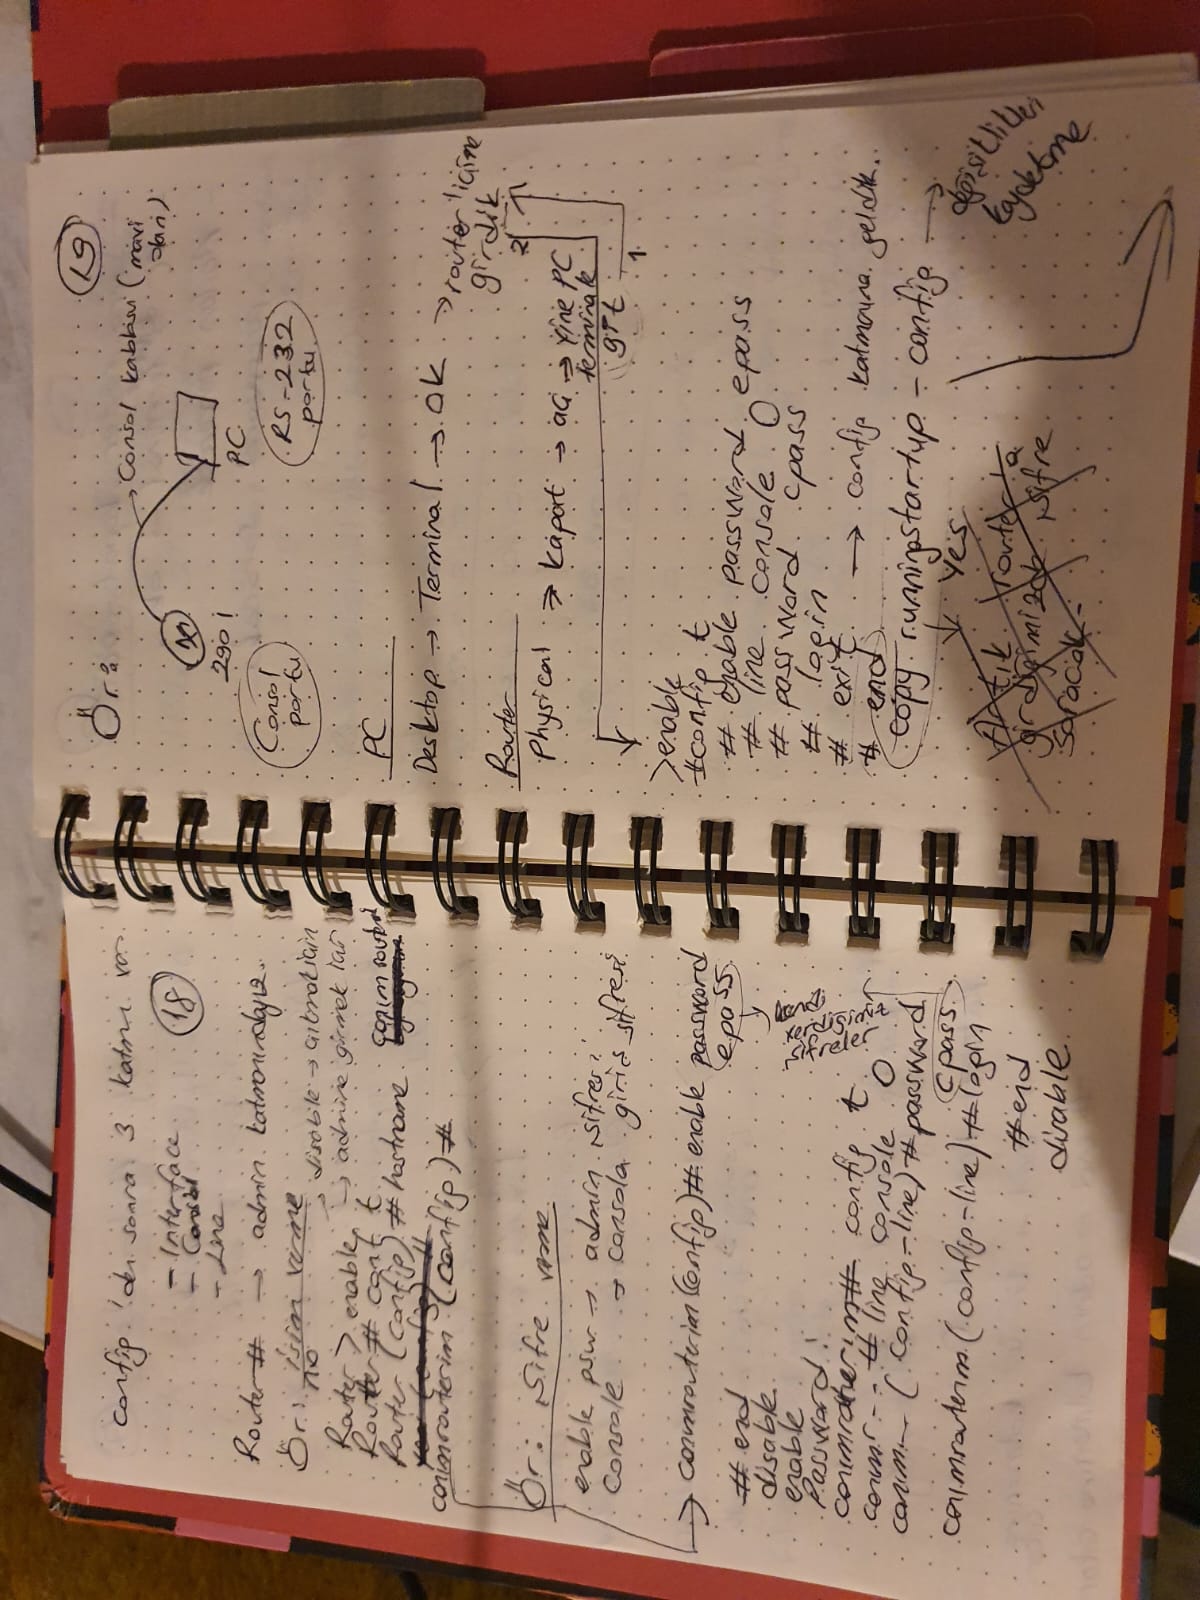 config 'den sonra 3 katman var
18
- Interface
- Consol
- Line
Router# → admin katmanındayız.
Ör: isim verme
no
→ disable → çıkmak için
Router > enable → admine girmek için
Router # conf t
Router (config) # hostname canımrouterim
canımrouterim (config) #
Ör: Şifre verme
enable psw → admin şifresi
console → consola giriş şifresi
→ canımrouterim(config)# enable password
epass
→ kendi verdiğimiz şifreler
# end
disable
enable
Password:
canımrouterim# config t
canımr-- # line console 0
canım-- (config-line) #password
cpass
canımrouterim (config-line) #login
#end
disable
19
Ör:
→ Consol kablosu (mavi olan)
2901
PC
Consol portu
RS-232 portu
PC
Desktop → Terminal → OK → router 'içine girdik
Router
Physical → kapat → aç → yine PC
terminale
git
1
2
>enable
#config t
# enable password epass
# line console 0
# password cpass
# login
# exit → config katmanına geldik.
# end
copy runningstartup-config → değişiklikleri kaydetme
Yes
Artık router'a
girdiğimizde şifre
soracak-